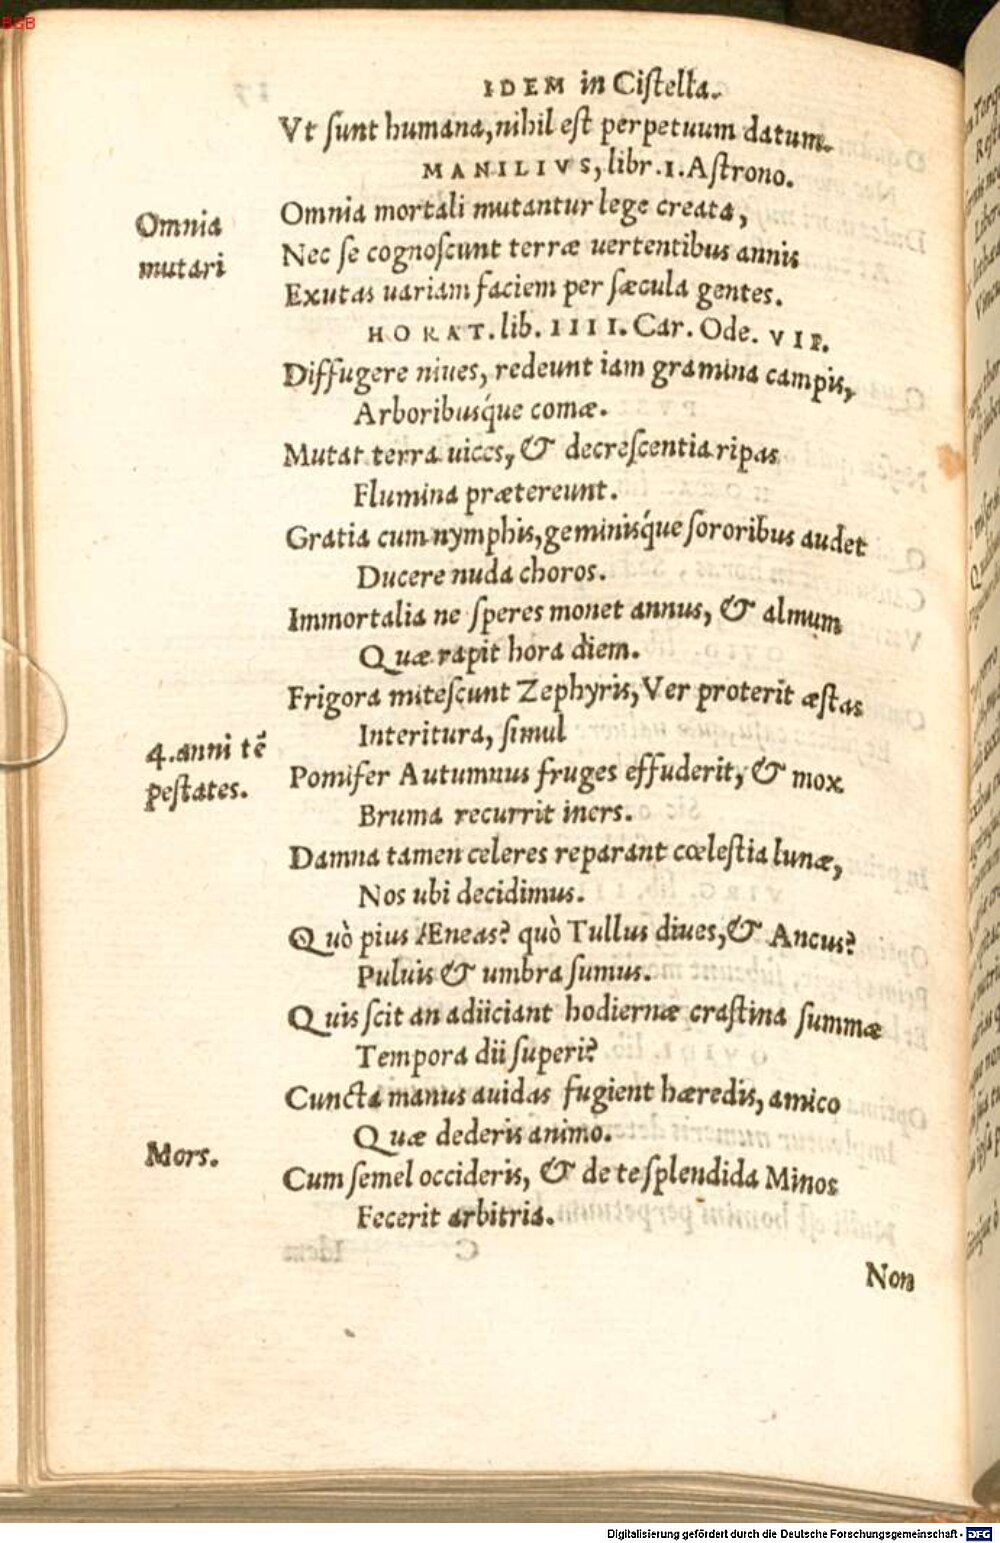 BSB
IDEM in Ciſtella.
Vt ſunt humana, nihil eſt perpetuum datum.
MANILIVS, libr. I. Aſtrono.
Omnia mortali mutantur lege creata,
Omnia
Nec ſe cognoſcunt terræ uertentibus annis
mutari
Exutas uariam faciem per ſæcula gentes.
HORAT. lib. IIII. Car. Ode. VII.
Diffugere niues, redeunt iam gramina campis,
Arboribusq́ue comæ.
Mutat terra uices, & decreſcentia ripas
Flumina prætereunt.
Gratia cum nymphis, geminisq́ue ſororibus audet
Ducere nuda choros.
Immortalia ne ſperes monet annus, & almum
Quæ rapit hora diem.
Frigora miteſcunt Zephyris, Ver proterit æſtas
Interitura, ſimul
4. anni tē
Pomifer Autumnus fruges effuderit, & mox
peſtates.
Bruma recurrit iners.
Damna tamen celeres reparant cœleſtia lunæ,
Nos ubi decidimus.
Quò pius Æneas? quò Tullus diues, & Ancus?
Puluis & umbra ſumus.
Quis ſcit an adiiciant hodiernæ craſtina ſummæ
Tempora dii ſuperi?
Cuncta manus auidas fugient hæredis, amico
Quæ dederis animo.
Mors.
Cum ſemel occideris, & de te ſplendida Minos
Fecerit arbitria.
Non
Digitalisierung gefördert durch die Deutsche Forschungsgemeinschaft - DFG